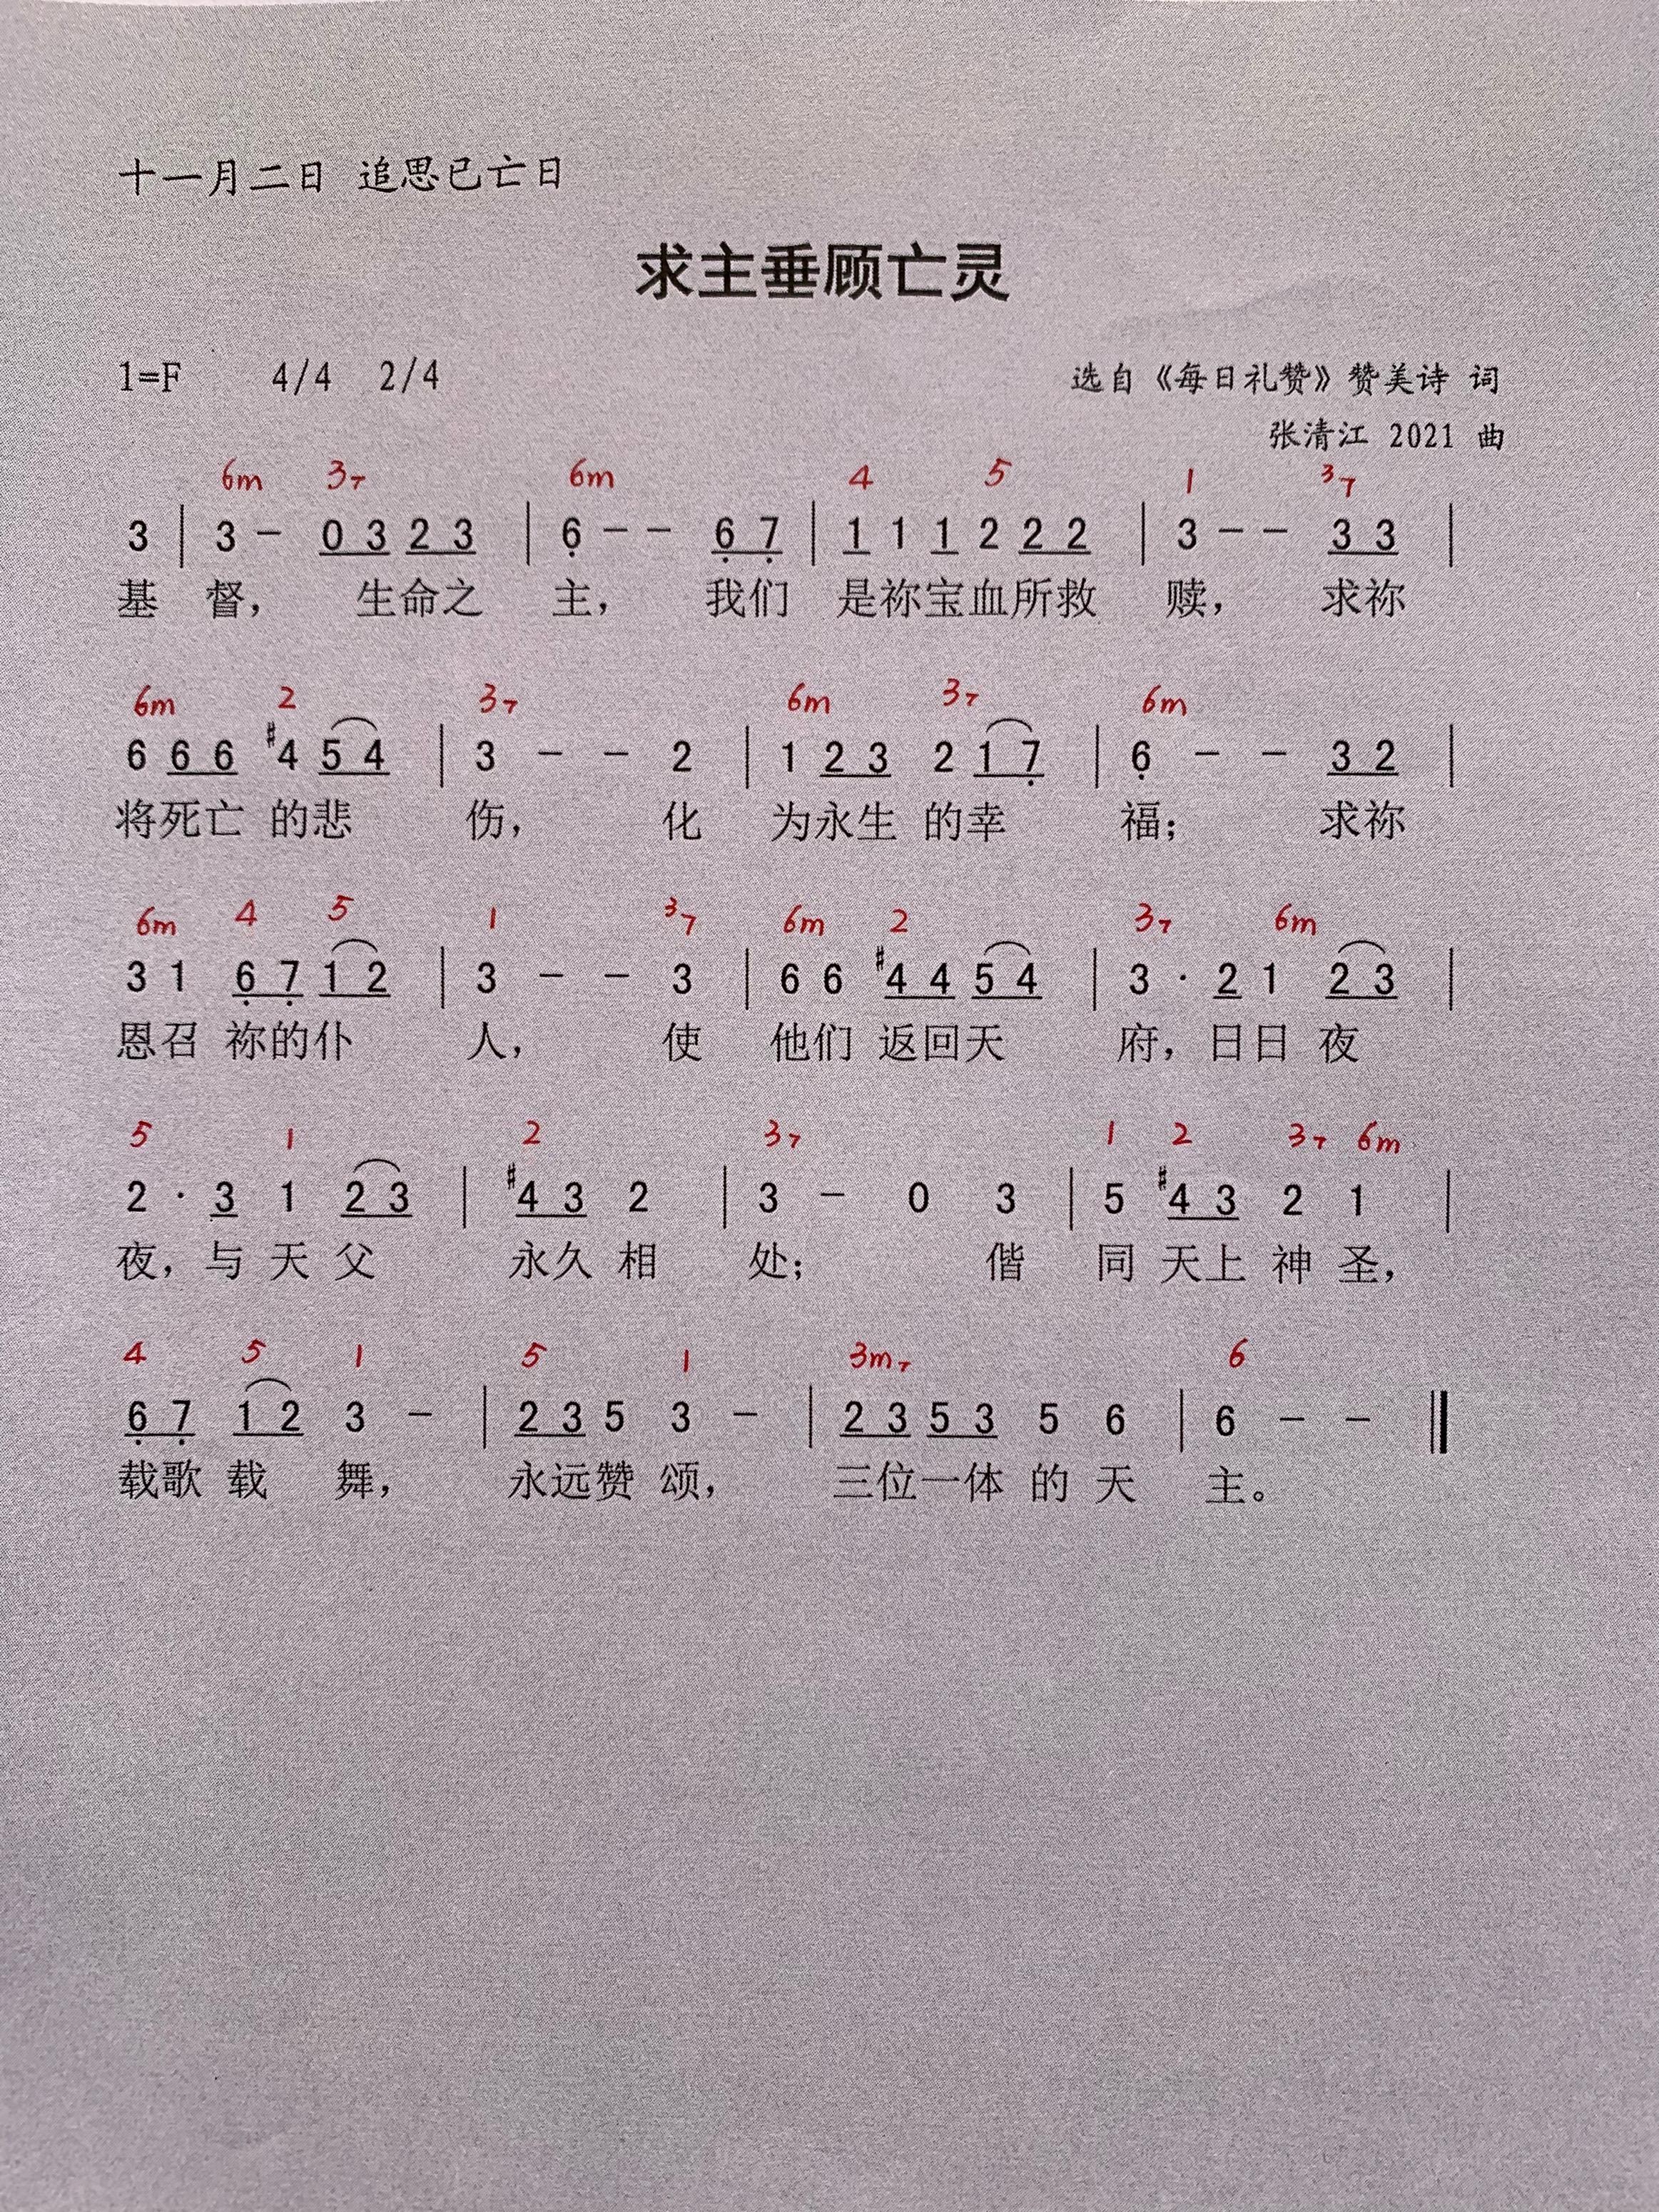 十一月二日 追思已亡日
求主垂顾亡灵
1=F 4/4 2/4 选自《每日礼赞》赞美诗 词
张清江 2021 曲
6m 37 6m 4 5 1 37
3 | 3 - 0 3 2 3 | 6 - - 6 7 | 1 1 1 2 2 2 | 3 - - 3 3 |
基 督， 生命之 主， 我们 是祢宝血所救 赎， 求祢
6m 2 37 6m 37 6m
6 6 6 #4 5 4 | 3 - - 2 | 1 2 3 2 1 7 | 6 - - 3 2 |
将死亡 的悲 伤， 化 为永生 的幸 福； 求祢
6m 4 5 1 37 6m 2 37 6m
3 1 6 7 1 2 | 3 - - 3 | 6 6 #4 4 5 4 | 3 · 2 1 2 3 |
恩召 祢的仆 人， 使 他们 返回天 府，日日 夜
5 1 2 37 1 2 37 6m
2 · 3 1 2 3 | #4 3 2 | 3 - 0 3 | 5 #4 3 2 1 |
夜，与 天 父 永久 相 处； 偕 同 天上 神 圣，
4 5 1 5 1 3m7 6
6 7 1 2 3 - | 2 3 5 3 - | 2 3 5 3 5 6 | 6 - - ‖
载歌 载 舞， 永远赞 颂， 三位一体 的 天 主。